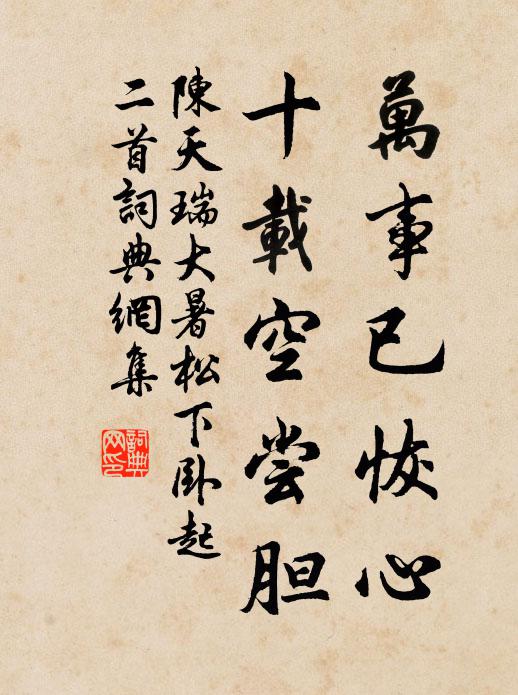 萬事已恢心
十載空尝胆
陳天瑞大暑松下卧起
二首詞典網集
詞典网印